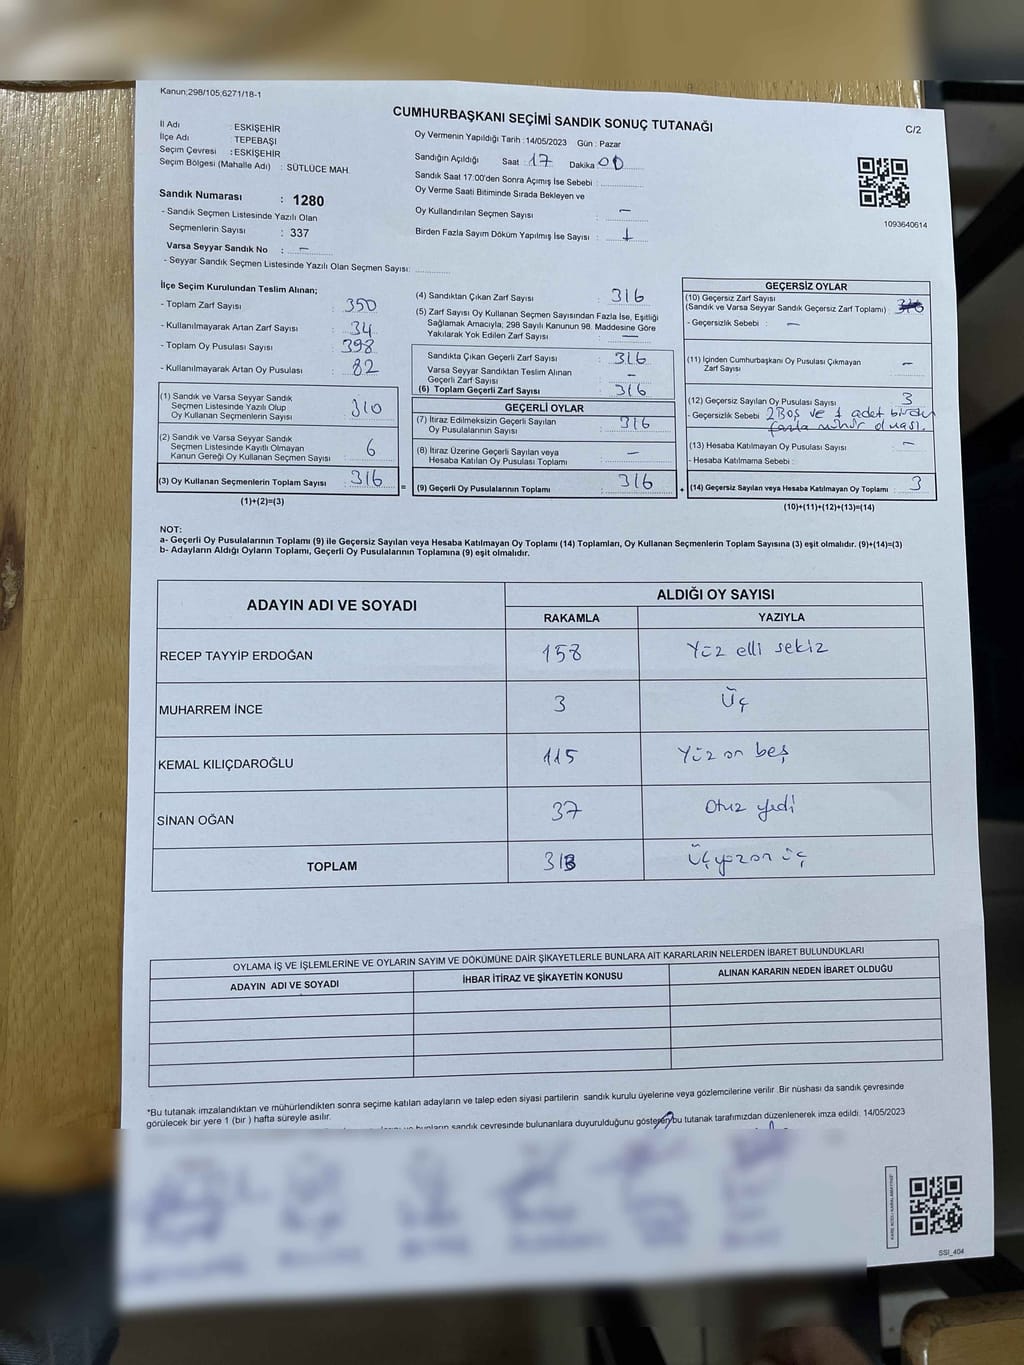 Kanun;298/105,6271/18-1
CUMHURBAŞKANI SEÇİMİ SANDIK SONUÇ TUTANAĞI
C/2
İl Adı : ESKİŞEHİR
İlçe Adı : TEPEBAŞI
Seçim Çevresi : ESKİŞEHİR
Seçim Bölgesi (Mahalle Adı) : SÜTLÜCE MAH.
Oy Vermenin Yapıldığı Tarih :14/05/2023 Gün : Pazar
Sandığın Açıldığı Saat : 17 Dakika 00
Sandık Saat 17:00'den Sonra Açımış İse Sebebi :
Oy Verme Saati Bitiminde Sırada Bekleyen ve
Oy Kullandırılan Seçmen Sayısı : —
Birden Fazla Sayım Döküm Yapılmış İse Sayısı : 1
1093640614
Sandık Numarası : 1280
- Sandık Seçmen Listesinde Yazılı Olan
Seçmenlerin Sayısı : 337
Varsa Seyyar Sandık No : —
- Seyyar Sandık Seçmen Listesinde Yazılı Olan Seçmen Sayısı:
İlçe Seçim Kurulundan Teslim Alınan;
- Toplam Zarf Sayısı : 350
- Kullanılmayarak Artan Zarf Sayısı : 34
- Toplam Oy Pusulası Sayısı : 398
- Kullanılmayarak Artan Oy Pusulası : 82
(1) Sandık ve Varsa Seyyar Sandık
Seçmen Listesinde Yazılı Olup
Oy Kullanan Seçmenlerin Sayısı : 310
(2) Sandık ve Varsa Seyyar Sandık
Seçmen Listesinde Kayıtlı Olmayan
Kanun Gereği Oy Kullanan Seçmen Sayısı : 6
(3) Oy Kullanan Seçmenlerin Toplam Sayısı : 316 =
(1)+(2)=(3)
(4) Sandıktan Çıkan Zarf Sayısı : 316
(5) Zarf Sayısı Oy Kullanan Seçmen Sayısından Fazla İse, Eşitliği
Sağlamak Amacıyla; 298 Sayılı Kanunun 98. Maddesine Göre
Yakılarak Yok Edilen Zarf Sayısı : —
Sandıkta Çıkan Geçerli Zarf Sayısı : 316
Varsa Seyyar Sandıktan Teslim Alınan
Geçerli Zarf Sayısı : —
(6) Toplam Geçerli Zarf Sayısı : 316
GEÇERLİ OYLAR
(7) İtiraz Edilmeksizin Geçerli Sayılan
Oy Pusulalarının Sayısı : 316
(8) İtiraz Üzerine Geçerli Sayılan veya
Hesaba Katılan Oy Pusulası Toplamı : —
(9) Geçerli Oy Pusulalarının Toplamı : 316 +
GEÇERSİZ OYLAR
(10) Geçersiz Zarf Sayısı
(Sandık ve Varsa Seyyar Sandık Geçersiz Zarf Toplamı) : 316
- Geçersizlik Sebebi : —
(11) İçinden Cumhurbaşkanı Oy Pusulası Çıkmayan
Zarf Sayısı : —
(12) Geçersiz Sayılan Oy Pusulası Sayısı : 3
- Geçersizlik Sebebi : 2 Boş ve 1 adet birden
fazla mühür olması.
(13) Hesaba Katılmayan Oy Pusulası Sayısı : —
- Hesaba Katılmama Sebebi :
(14) Geçersiz Sayılan veya Hesaba Katılmayan Oy Toplamı : 3
(10)+(11)+(12)+(13)=(14)
NOT:
a- Geçerli Oy Pusulalarının Toplamı (9) ile Geçersiz Sayılan veya Hesaba Katılmayan Oy Toplamı (14) Toplamları, Oy Kullanan Seçmenlerin Toplam Sayısına (3) eşit olmalıdır. (9)+(14)=(3)
b- Adayların Aldığı Oyların Toplamı, Geçerli Oy Pusulalarının Toplamına (9) eşit olmalıdır.
ADAYIN ADI VE SOYADI
ALDIĞI OY SAYISI
RAKAMLA YAZIYLA
RECEP TAYYİP ERDOĞAN 158 Yüz elli sekiz
MUHARREM İNCE 3 Üç
KEMAL KILIÇDAROĞLU 115 Yüz on beş
SİNAN OĞAN 37 Otuz yedi
TOPLAM 313 Üçyüz on üç
OYLAMA İŞ VE İŞLEMLERİNE VE OYLARIN SAYIM VE DÖKÜMÜNE DAİR ŞİKAYETLERLE BUNLARA AİT KARARLARIN NELERDEN İBARET BULUNDUKLARI
ADAYIN ADI VE SOYADI İHBAR İTİRAZ VE ŞİKAYETİN KONUSU ALINAN KARARIN NEDEN İBARET OLDUĞU
*Bu tutanak imzalandıktan ve mühürlendikten sonra seçime katılan adayların ve talep eden siyasi partilerin sandık kurulu üyelerine veya gözlemcilerine verilir .Bir nüshası da sandık çevresinde
görülecek bir yere 1 (bir ) hafta süreyle asılır.
sandık çevresinde bulunanlara duyurulduğunu gösteren bu tutanak tarafımızdan düzenlenerek imza edildi. 14/05/2023
SSI_404